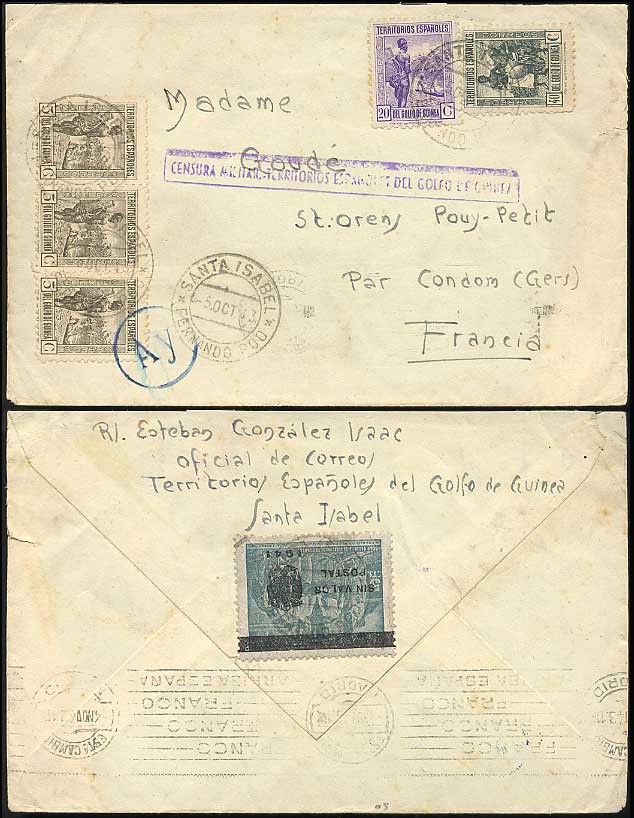 TERRITORIOS ESPAÑOLES
20 C
DEL GOLFO DE GUINEA
CORREOS
TERRITORIOS ESPAÑOLES
40 C
DEL GOLFO DE GUINEA
TERRITORIOS ESPAÑOLES
5 C
DEL GOLFO DE GUINEA
TERRITORIOS ESPAÑOLES
5 C
DEL GOLFO DE GUINEA
TERRITORIOS ESPAÑOLES
5 C
DEL GOLFO DE GUINEA
Madame
Goudé
CENSURA MILITAR-TERRITORIOS ESPAÑOLES DEL GOLFO DE GUINEA
St. Orens Pouy-Petit
Par Condom (Gers)
Francia
SANTA ISABEL
-5 OCT 43
FERNANDO POO
Ay
R/. Esteban González Isaac
Oficial de Correos
Territorios Españoles del Golfo de Guinea
Santa Isabel
SIN VALOR
POSTAL
1941
ARRIBA ESPAÑA
FRANCO
FRANCO
FRANCO
MADRID
ARRIBA ESPAÑA
FRANCO
FRANCO
FRANCO